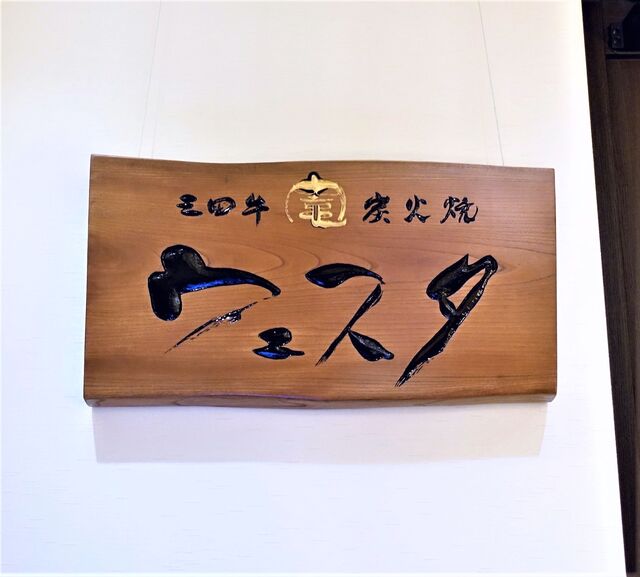 三田牛 炭火焼
ウェスタ